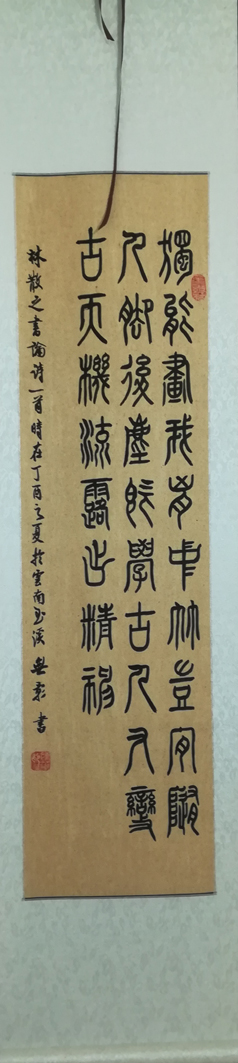 獨能畫我胸中竹豈肯隨
人脚後塵既學古人又變
古天機流露出精神
林散之書論詩一首時在丁酉之夏於雲南玉溪書